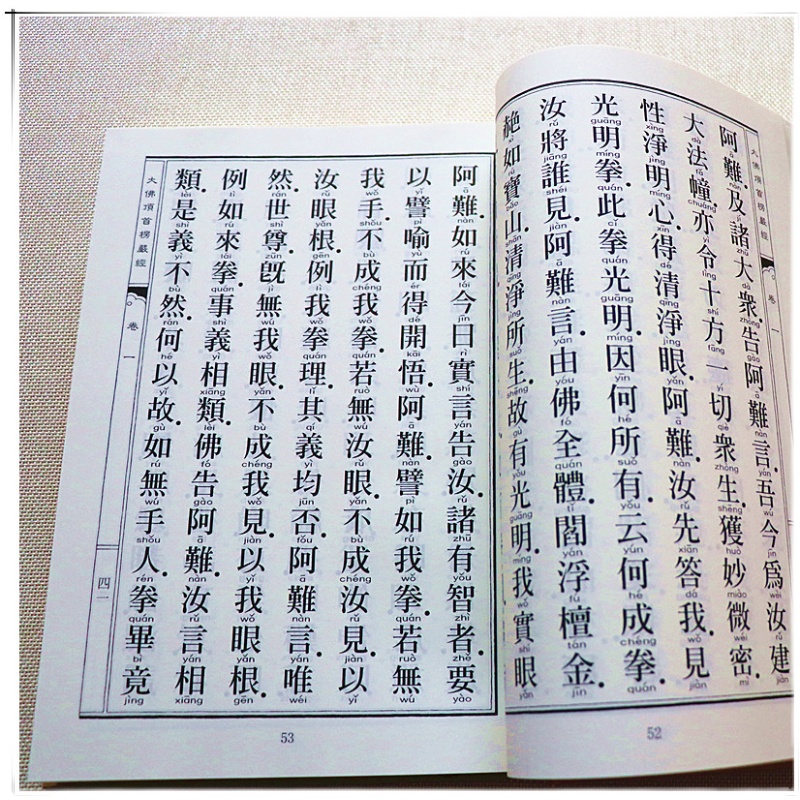 大佛頂首楞嚴經 卷一
阿難及諸大衆。告阿難言。吾今爲汝建
大法幢。亦令十方一切衆生。獲妙微密。
性淨明心。得清淨眼。阿難。汝先答我。見
光明拳。此拳光明。因何所有。云何成拳。
汝將誰見。阿難言。由佛全體。閻浮檀金。
赩如寶山。清淨所生。故有光明。我實眼
52
阿難。如來今日實言告汝。諸有智者。要
以譬喻而得開悟。阿難。譬如我拳。若無
我手。不成我拳。若無汝眼。不成汝見。以
汝眼根。例我拳理。其義均否。阿難言。唯
然。世尊。旣無我眼。不成我見。以我眼根。
例如來拳。事義相類。佛告阿難。汝言相
類。是義不然。何以故。如無手人。拳畢竟
大佛頂首楞嚴經 卷一 四二
53